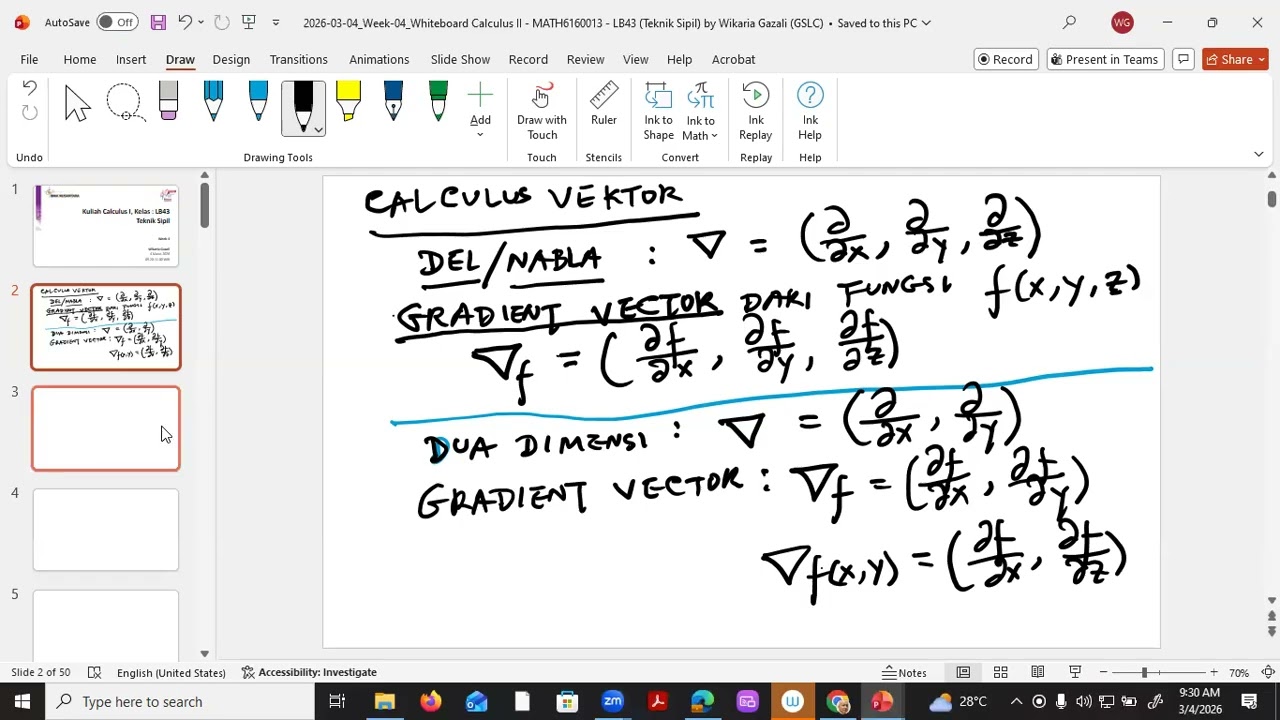 AutoSave Off 2026-03-04_Week-04_Whiteboard Calculus II - MATH6160013 - LB43 (Teknik Sipil) by Wikaria Gazali (GSLC) • Saved to this PC WG
File Home Insert Draw Design Transitions Animations Slide Show Record Review View Help Acrobat Record Present in Teams Share
Undo
Add
Draw with Touch
Ruler
Ink to Shape
Ink to Math
Ink Replay
Ink Help
Drawing Tools Touch Stencils Convert Replay Help
1
Kuliah Calculus I, Kelas : LB43
Teknik Sipil
2
3
4
5
CALCULUS VEKTOR
DEL/NABLA : ∇ = (∂/∂x, ∂/∂y, ∂/∂z)
GRADIENT VECTOR DARI FUNGSI f(x,y,z)
∇f = (∂f/∂x, ∂f/∂y, ∂f/∂z)
DUA DIMENSI : ∇ = (∂/∂x, ∂/∂y)
GRADIENT VECTOR : ∇f = (∂f/∂x, ∂f/∂y)
∇f(x,y) = (∂f/∂x, ∂f/∂z)
Slide 2 of 50 English (United States) Accessibility: Investigate Notes 70%
Type here to search 28°C 9:30 AM
3/4/2026